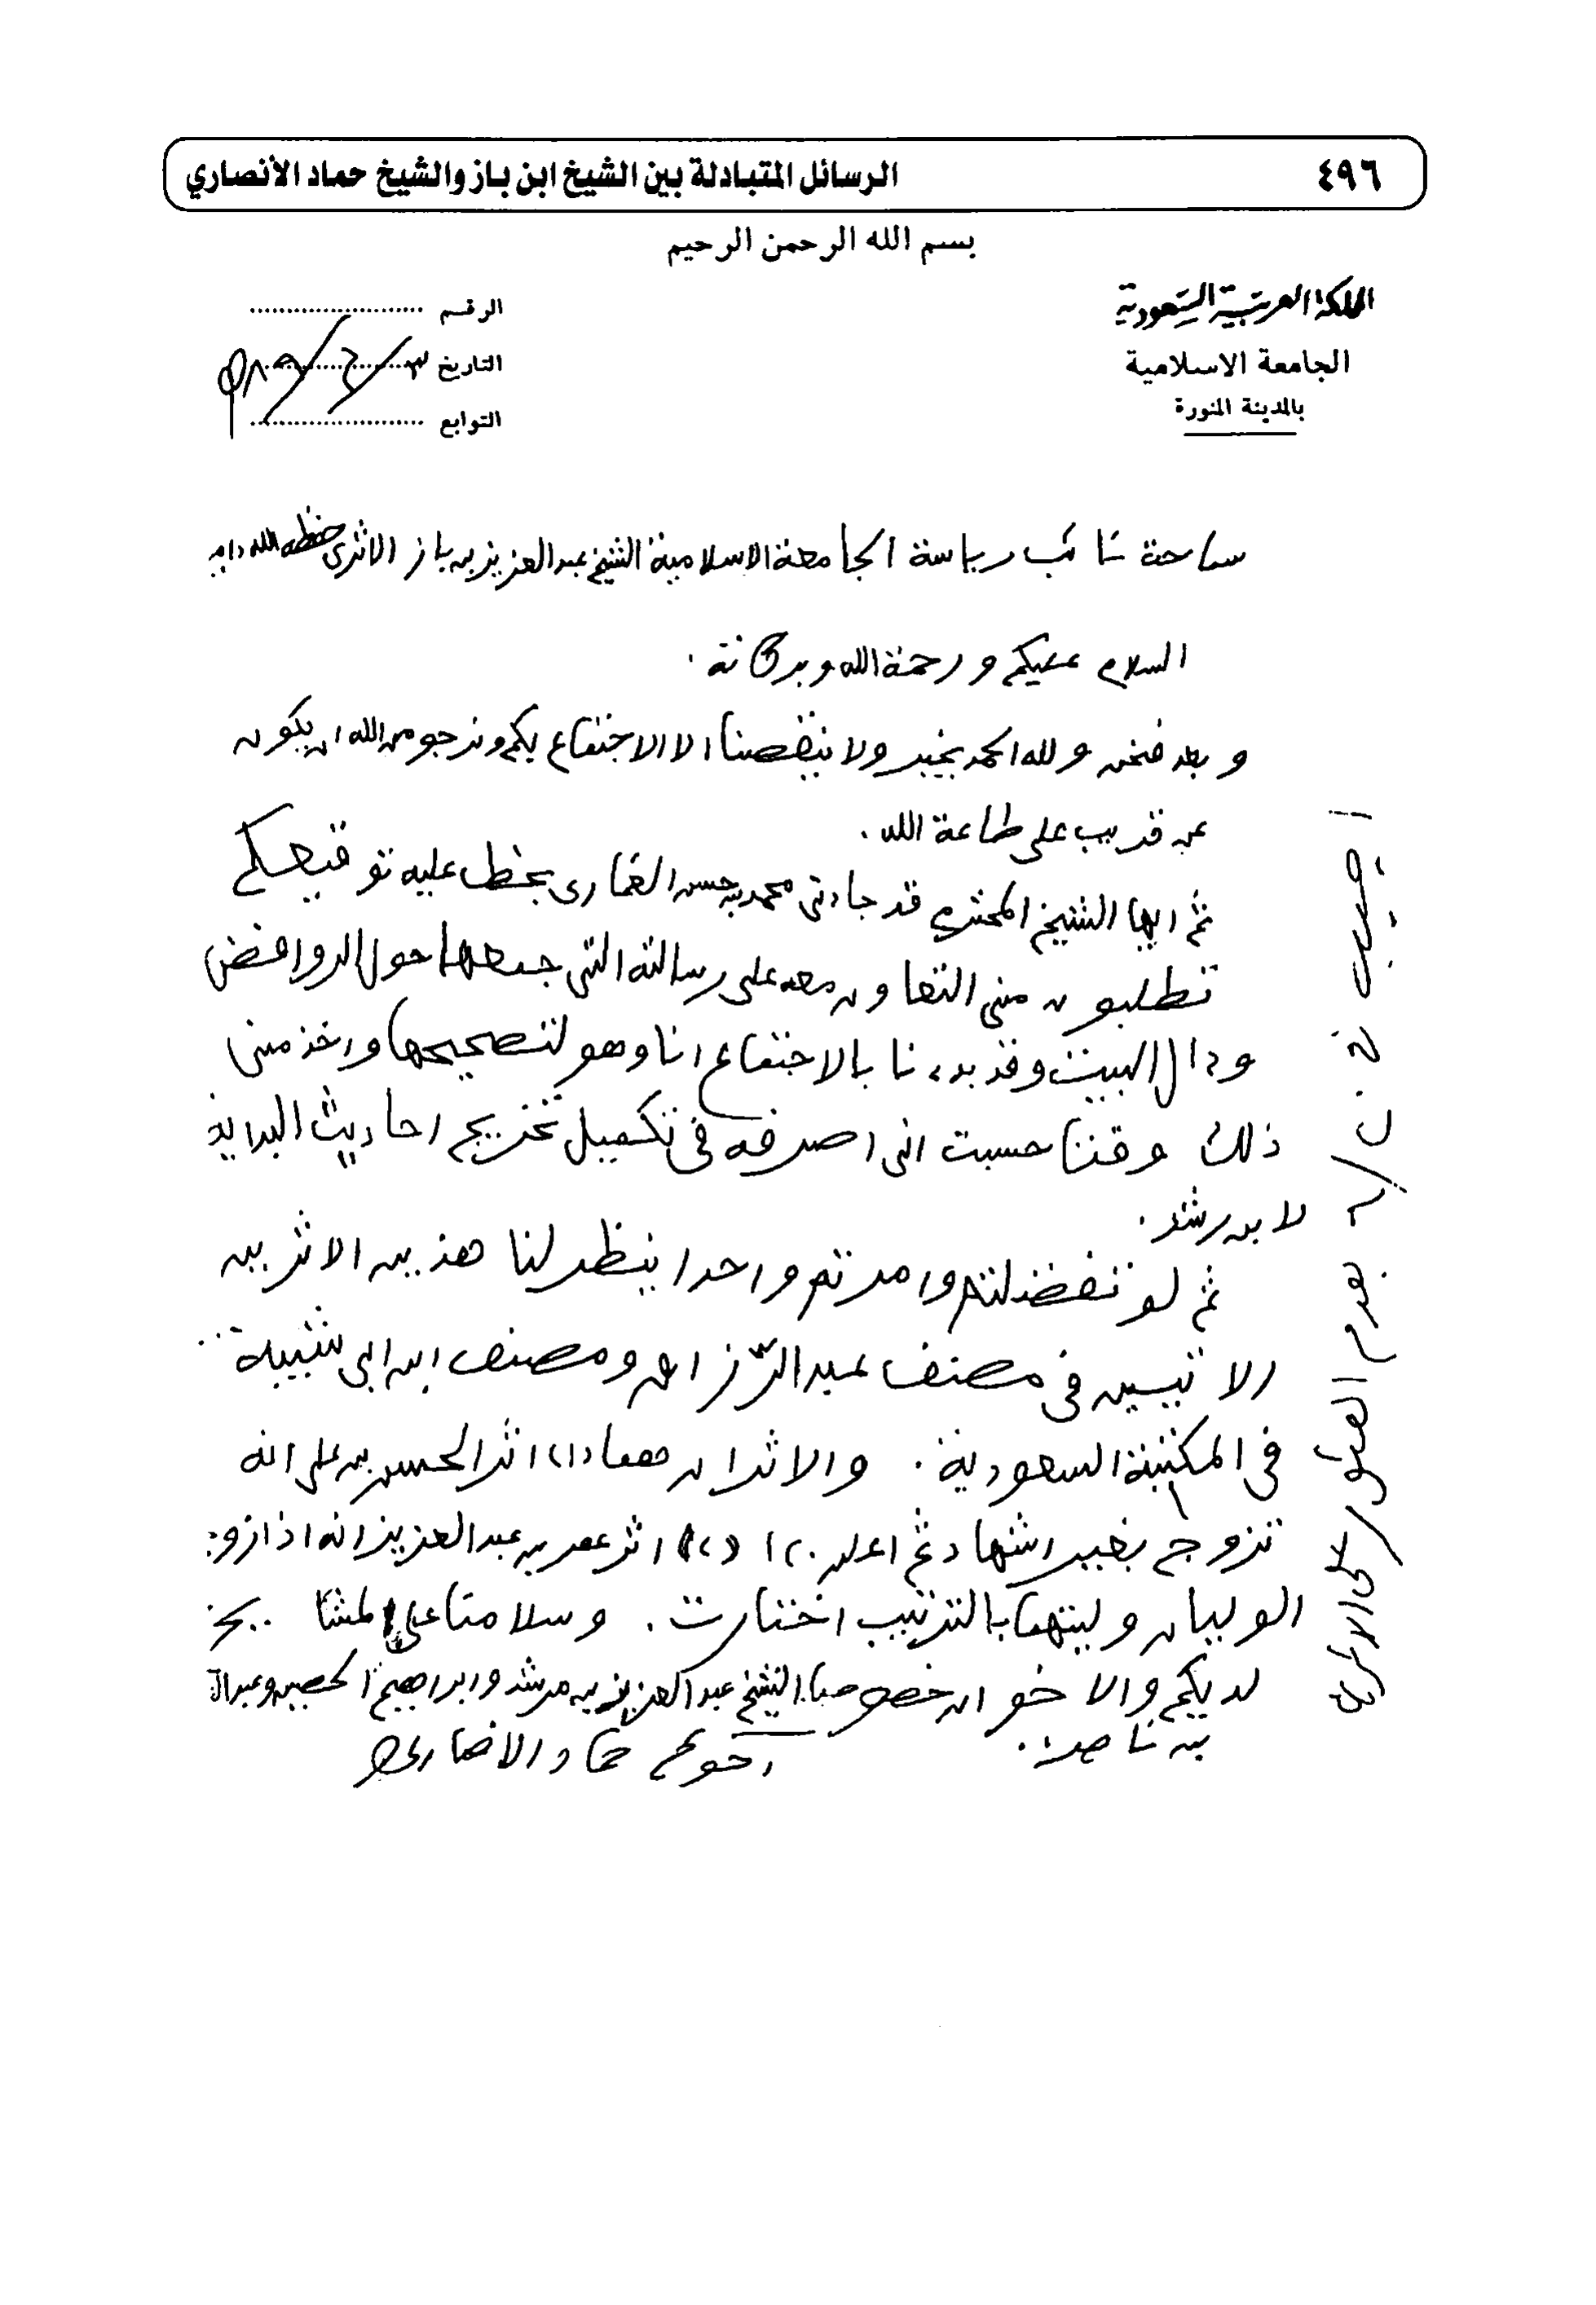 ٤٩٦
الرسائل المتبادلة بين الشيخ ابن باز والشيخ حماد الأنصاري
بسم الله الرحمن الرحيم
المملكة العربية السعودية
الجامعة الاسلامية
بالمدينة المنورة
الرقم
التاريخ
التوابع
سماحة نائب رياسة الجامعة الاسلامية الشيخ عبد العزيز بن باز الاثرى حفظه الله
السلام عليكم ورحمة الله وبركاته .
وبعد فنحن ولله الحمد بخير ولا ينقصنا الا الاجتماع بكم ونرجو من الله ان يكون
عن قريب على طاعة الله .
ثم ايها الشيخ المحترم قد جاءنى محمد بن حسن الغمارى بخط عليه توقيعكم
تطلبون منى التعاون معه على رسالته التى جمعها حول الروافض
وءال البيت وقد بدءنا بالاجتماع انا وهو لتصحيحها واخذ منى
ذلك وقتا حسبت انى اصرفه فى تكميل تخريج احاديث البداية
لابن رشد .
ثم لو تفضلتم وامرتم واحدا ينظر لنا هذين الاثرين
الاتيين فى مصنف عبد الرزاق ومصنف ابن ابى شيبة
فى المكتبة السعودية . والاثران هما (١) اثر الحسن بن على انه
تزوج بغير اشهاد ثم اعلن (٢) اثر عمر بن عبد العزيز انه اذا زوج
الوليان وليتهما بالترتيب اختارت . وسلامنا على المشايخ
لديكم والاخوان خصوصا الشيخ عبد العزيز بن مرشد وابراهيم الحصين
بن ناصر .
اخوكم حماد الانصارى
اجيب
بعدم العثور على الاثرين